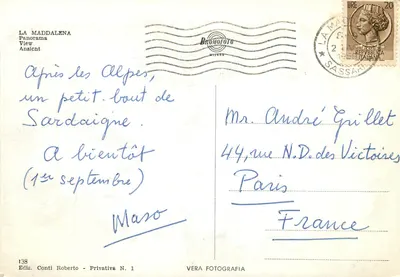 LA MADDALENA
Panorama
View
Ansicht
Après les Alpes,
un petit bout de
Sardaigne.
A bientôt
(1er septembre)
Maso
138
Ediz. Conti Roberto - Privativa N. 1
VERA FOTOGRAFIA
20
LA MA
SASSARI
Mr. André Grillet
44, rue N.D. des Victoires
Paris
France